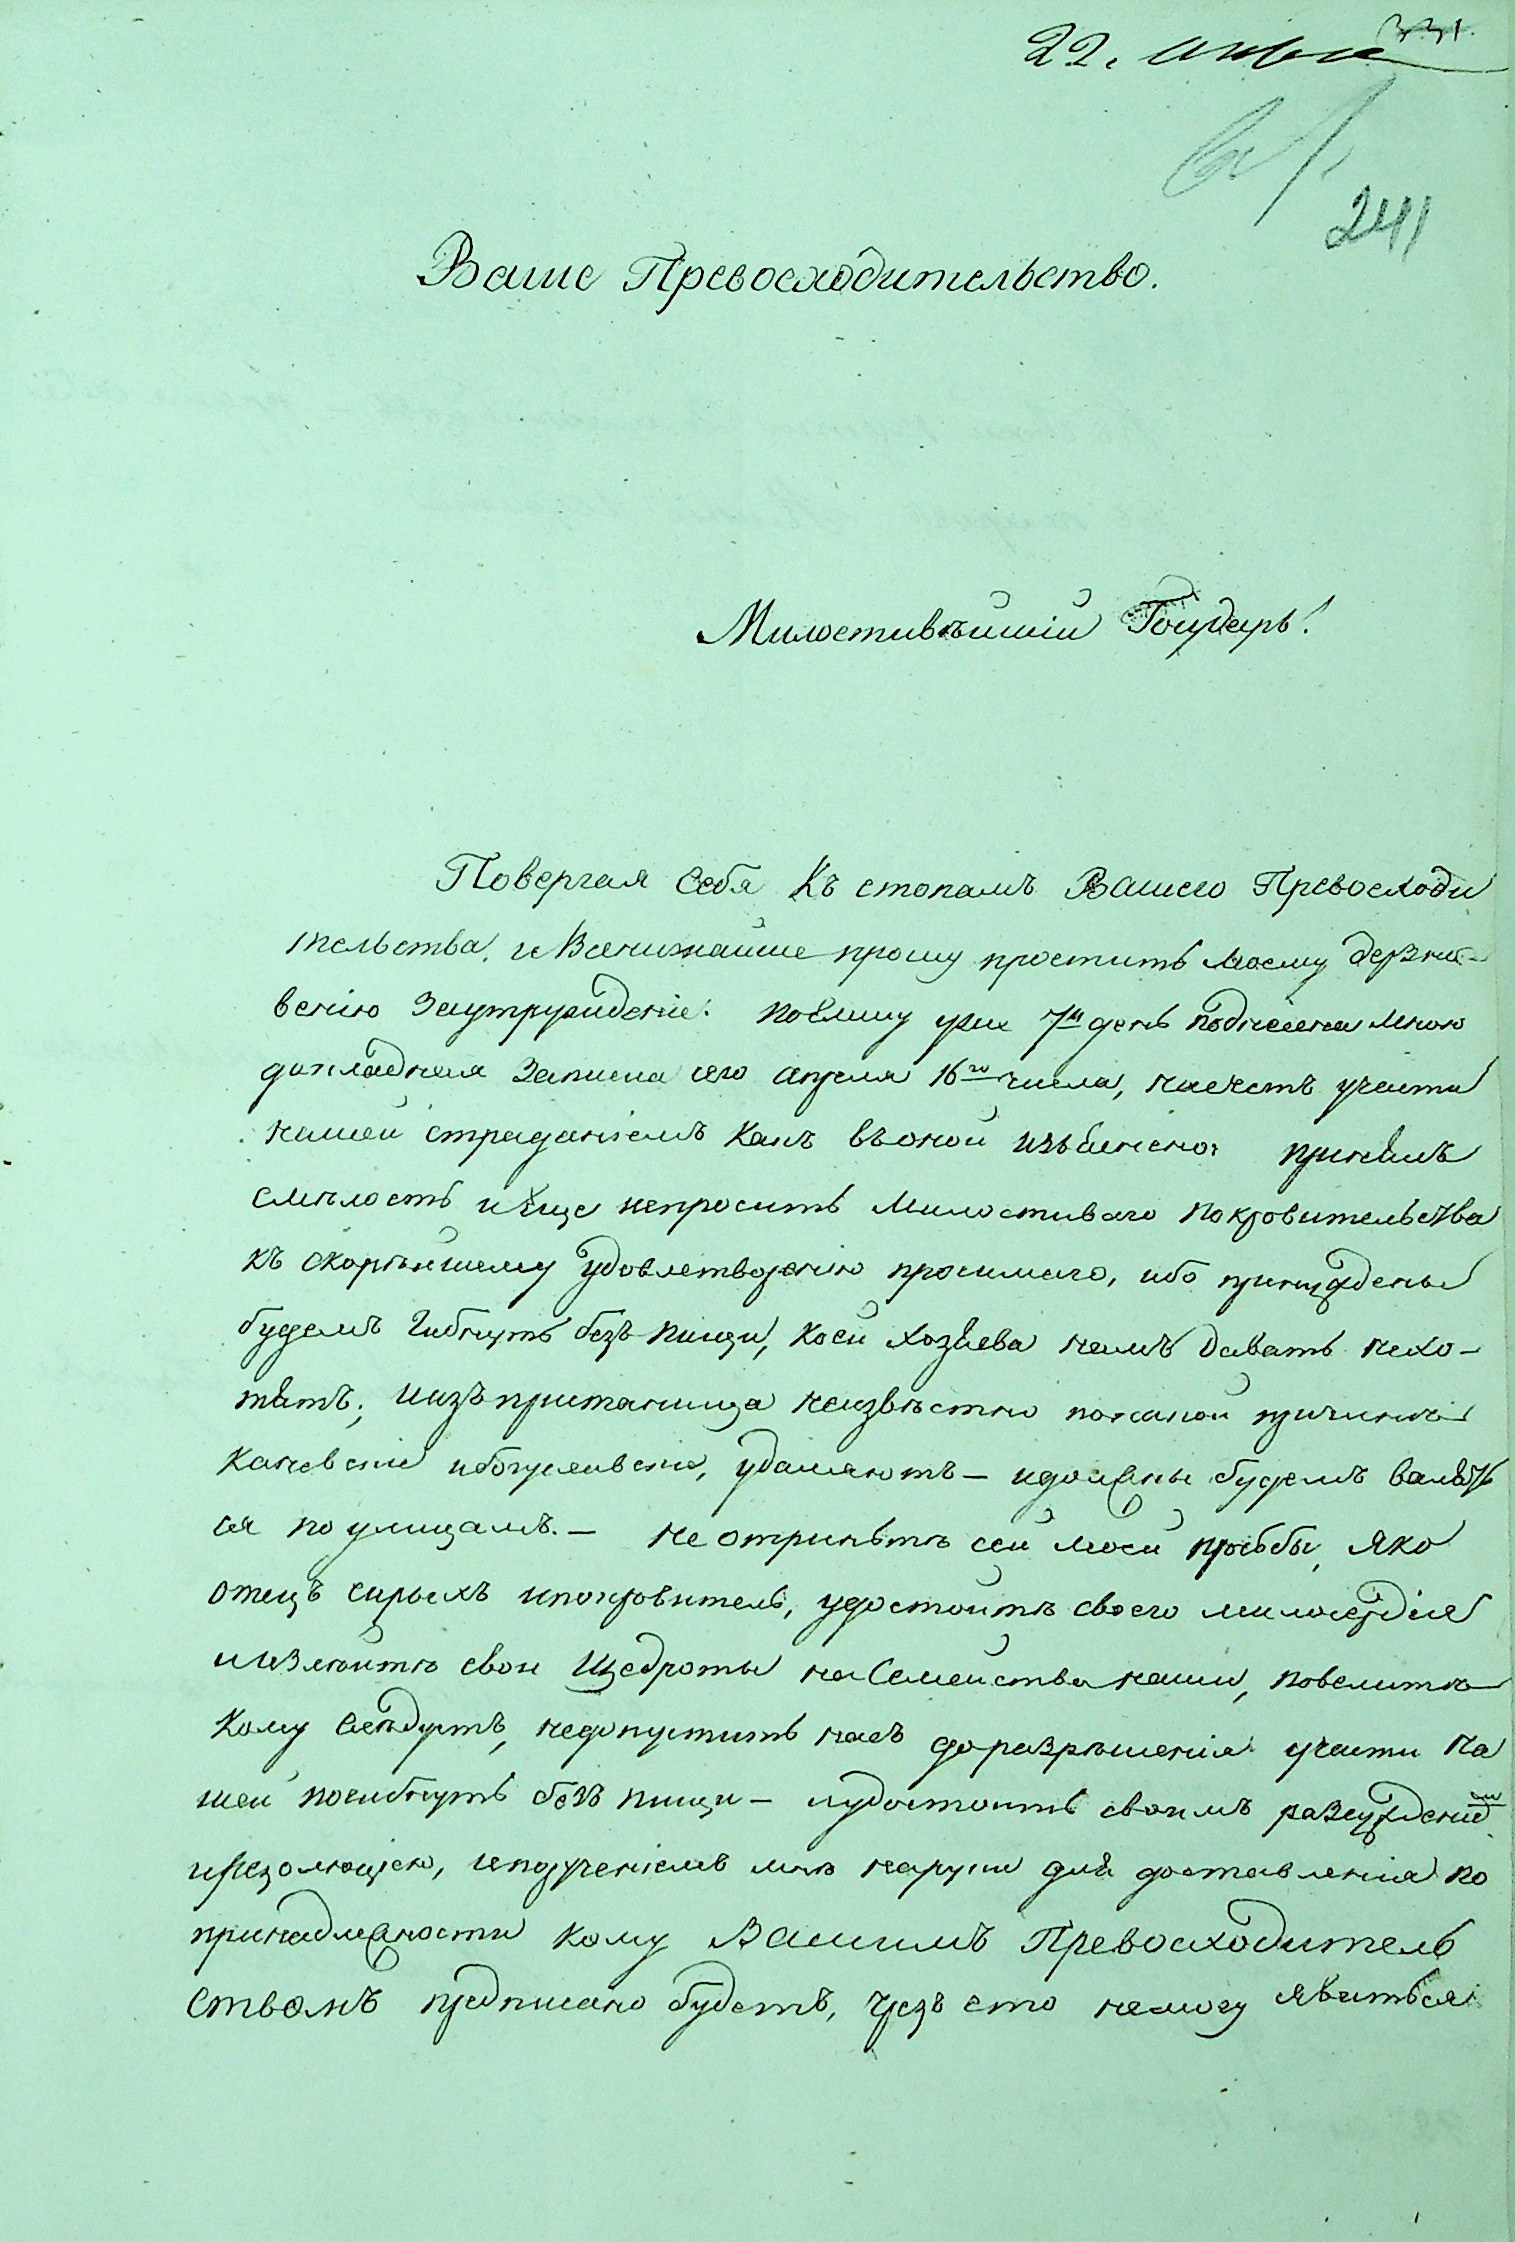 22. апреля
331.
241
Ваше Превосходительство.
Милостивѣйшій Государь!
Повергая себя къ стопамъ Вашего Превосходи
тельства, и Всенижайше прошу простить моему дерзно-
венію заутружденіе: поелику уже 7й день поднесена мною
докладная записка сего апреля 16го числа, насчетъ участи
нашей страданіемъ какъ въоной изъяснено: принялъ
смѣлость иеще непросить милостиваго покровительства
къ скорѣйшему удовлетворенію просимаго, ибо принуждены
будемъ гибнуть безъ пищи, коей хозяева намъ давать нехо-
тятъ; иизъ пританища неизвѣстно покакой причинѣ
каневскіе ибогуславскіе, удаляютъ – идолжны будемъ валять
ся по улицамъ. – не отринѣте сей моей прозьбы, яко
отецъ сирыхъ ипокровитель, удостойте своего милосердія
иизлѣйте свои щедроты на Семейства наши, повелите
кому слѣдуетъ, недопустить насъ до разрѣшенія участи на
шей погибнуть безъ пищи – иудостоить своимъ разсужденіемъ
ирезолюціею, ипорученіемъ мнѣ наруки для доставленія по
принадлежности кому Вашимъ Превосходитель
ствомъ предписано будетъ, чрезъ ето немогу явиться